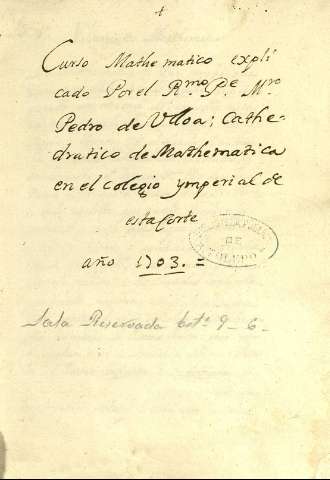 +
Curso Mathematico expli
cado Por el R.mo P.e M.ro
Pedro de Vlloa; Cathe-
dratico de Mathematica
en el colegio ymperial de
esta Corte
año 1703. =
DE
TOLEDO
Sala Reservada Est.e 9 - 6 -